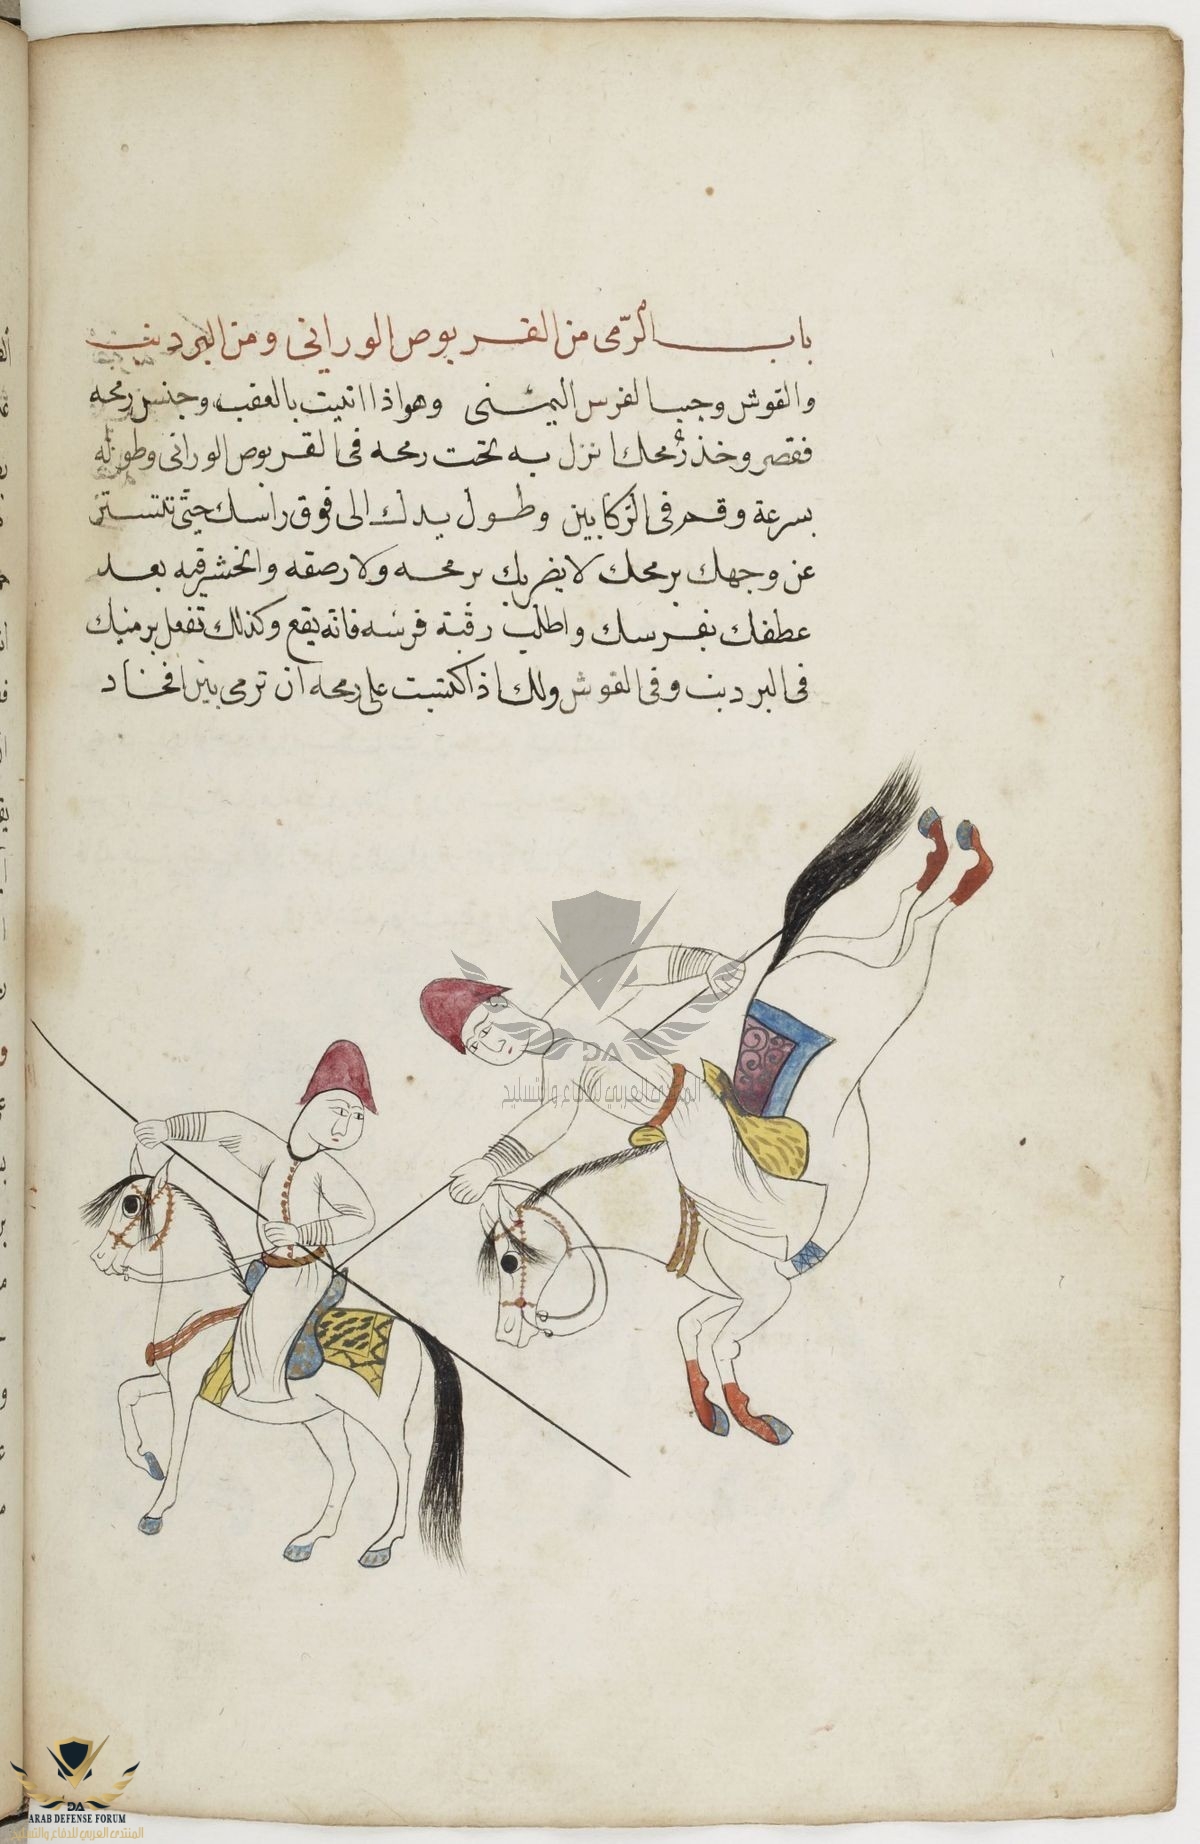 باب الرّمى من القربوص الورانى ومن البردبنب
والقوش وجبا الفرس اليمنى وهو اذا اتيت بالعقب وجنس رمحه
فقصر وخذ رُمحك انزل به تحت رمحه فى القربوص الورانى وطوله
بسرعة وقم فى الرّكابين وطول يدك الى فوق راسك حتّى تلتستر
عن وجهك برمحك لا يضربك برمحه ولا رصقه وانخشر فيه بعد
عطفك بفرسك واطلب رقبة فرسه فانه يقع وكذلك تفعل برميك
فى البردبنب وفى القوش ولك اذا كتبت على رمحه ان ترمى بين افخاد
DA
المنتدى العربي للدفاع والتسليح
DA
ARAB DEFENSE FORUM
المنتدى العربي للدفاع والتسليح